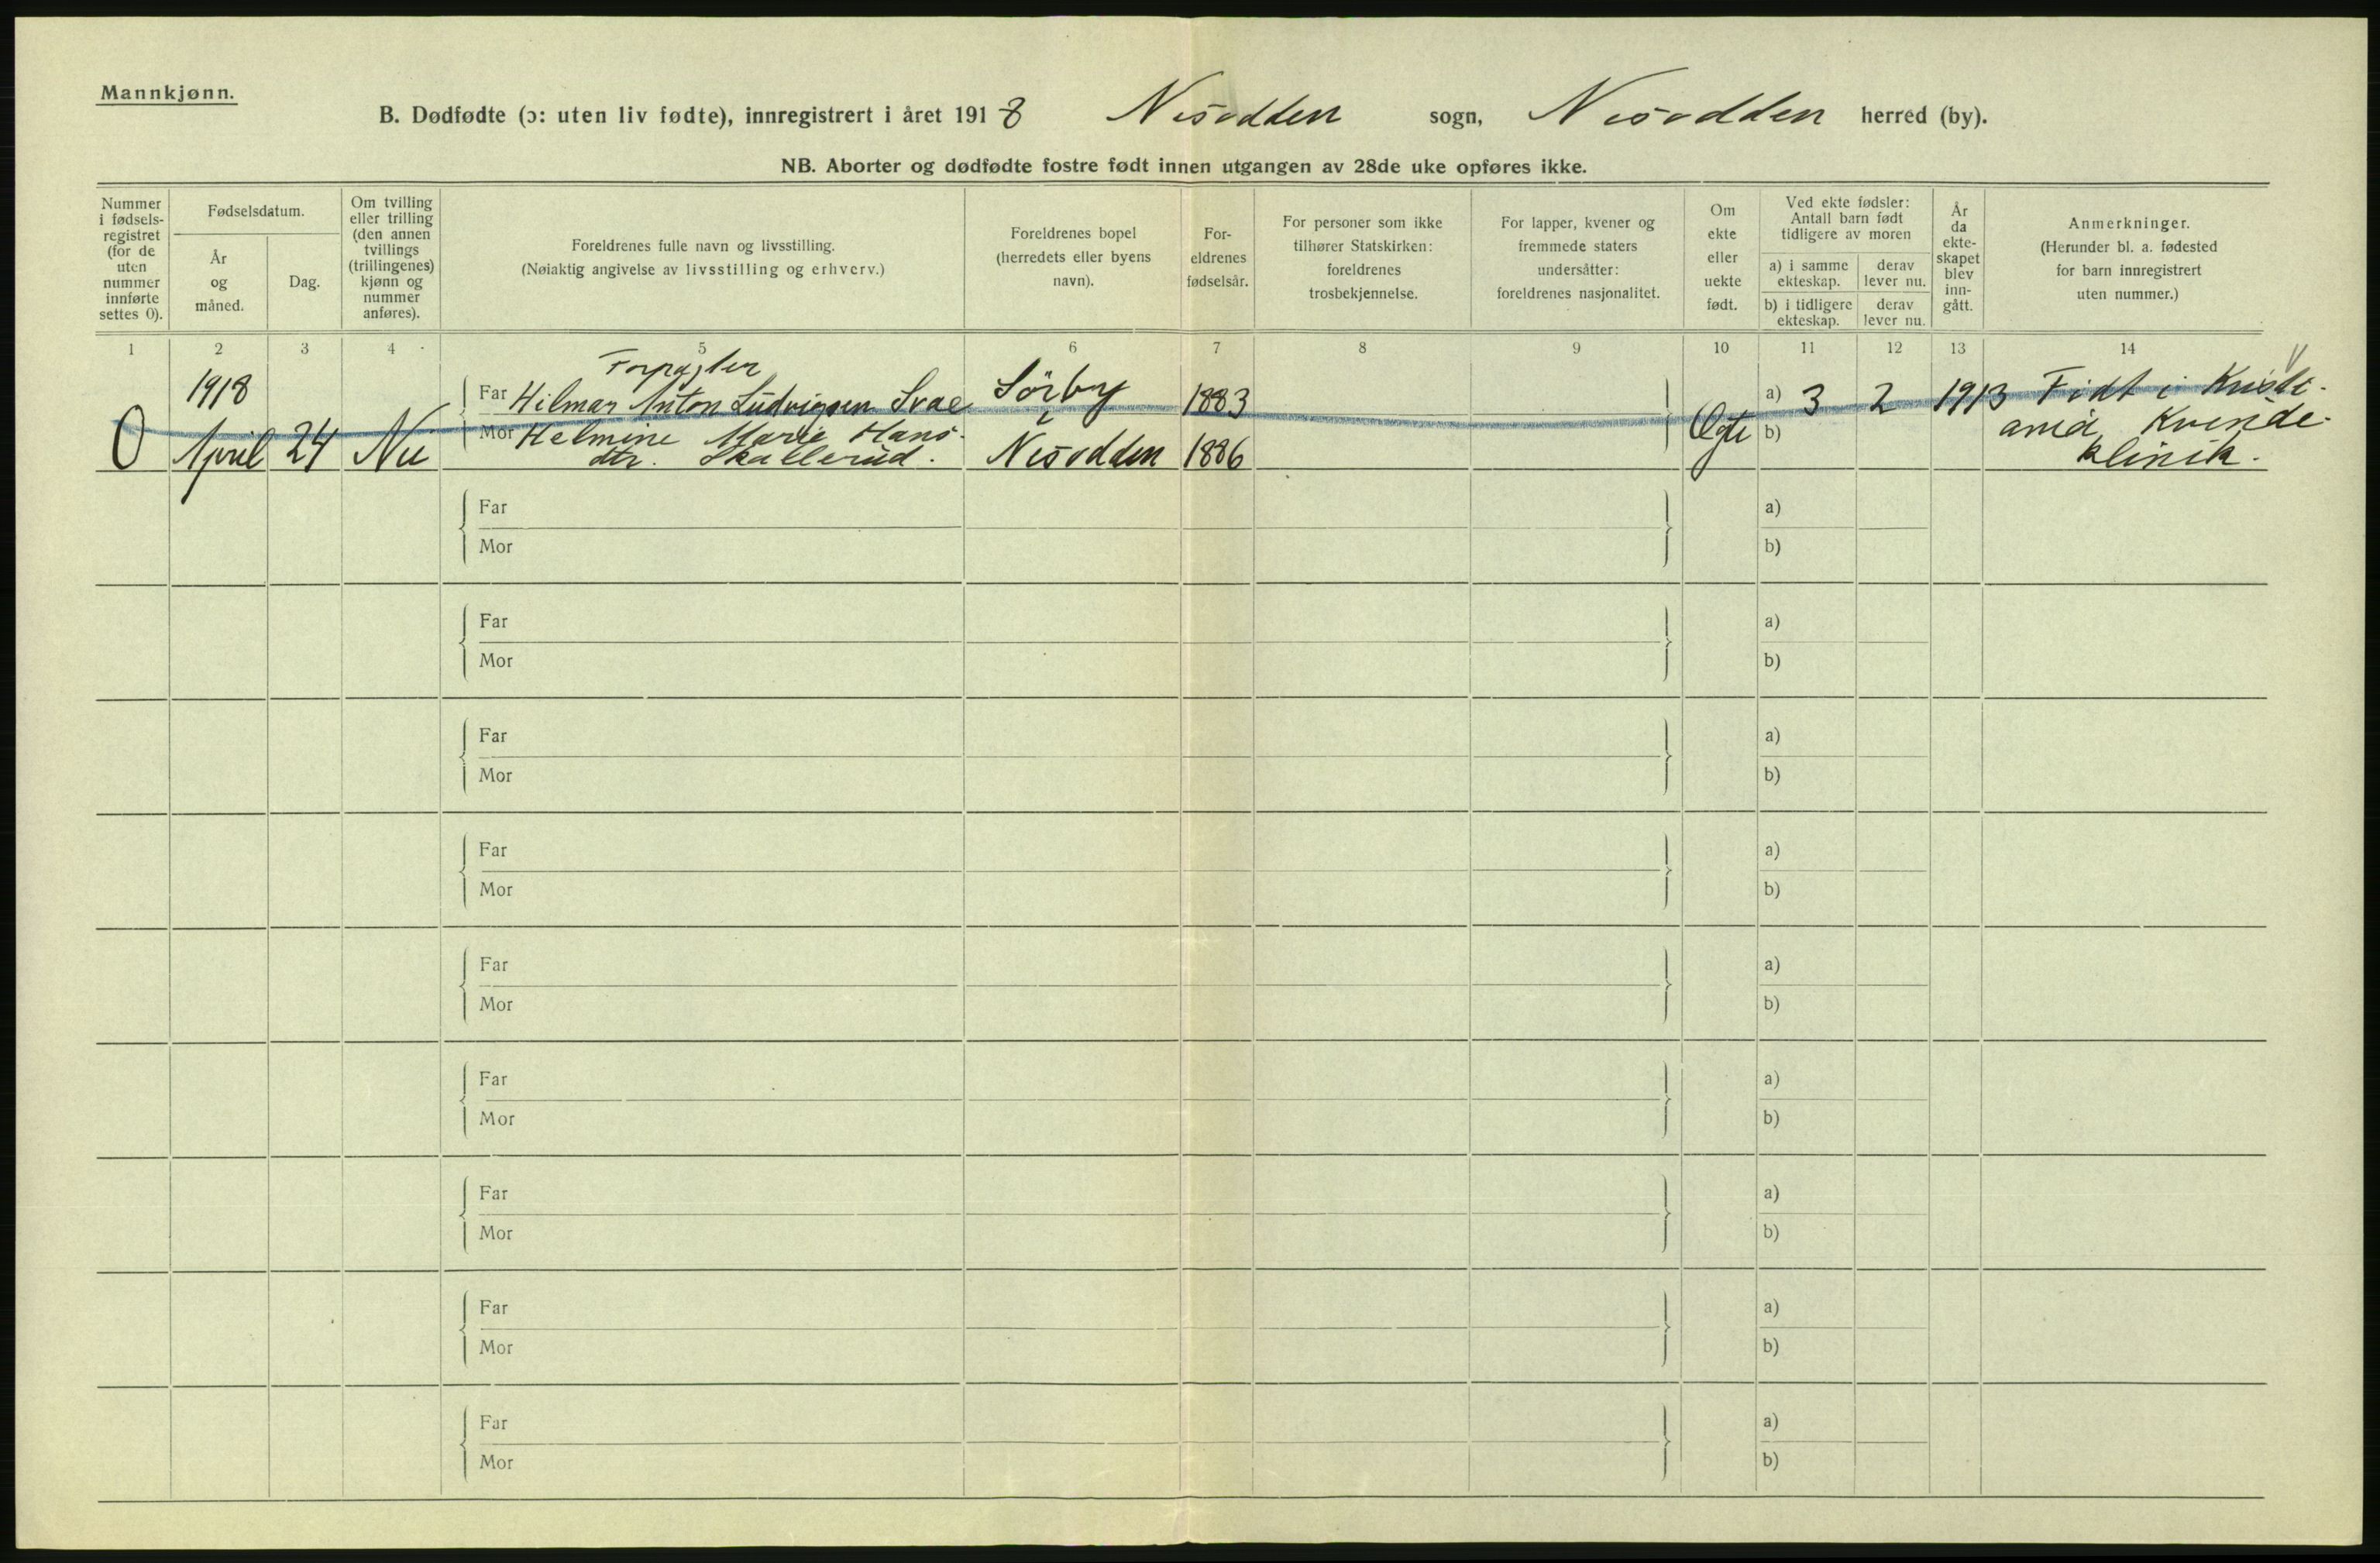 Mannkjønn.
B. Dødfødte (ɔ: uten liv fødte), innregistrert i året 1918 Nesodden sogn, Nesodden herred (by).
NB. Aborter og dødfødte fostre født innen utgangen av 28de uke opføres ikke.
Nummer
i fødsels-
registret
(for de
uten
nummer
innførte
settes 0).
Fødselsdatum.
År
og
måned.
Dag.
Om tvilling
eller trilling
(den annen
tvillings
(trillingenes)
kjønn og
nummer
anføres).
Foreldrenes fulle navn og livsstilling.
(Nøiaktig angivelse av livsstilling og erhverv.)
Foreldrenes bopel
(herredets eller byens
navn).
For-
eldrenes
fødselsår.
For personer som ikke
tilhører Statskirken:
foreldrenes
trosbekjennelse.
For lapper, kvener og
fremmede staters
undersåtter:
foreldrenes nasjonalitet.
Om
ekte
eller
uekte
født.
Ved ekte fødsler:
Antall barn født
tidligere av moren
a) i samme
ekteskap.
derav
lever nu.
b) i tidligere
ekteskap.
derav
lever nu.
År
da
ekte-
skapet
blev
inn-
gått.
Anmerkninger.
(Herunder bl. a. fødested
for barn innregistrert
uten nummer.)
1 2 3 4 5 6 7 8 9 10 11 12 13 14
Forpagter
1918 Far Hilmar Anton Ludvigsen Svae Sörby 1883 a) 3 2 1913 Födt i Kristi-
Mor Helmine Marie Hans- b) ania Kvinde-
0 April 24 Nei dtr. Skallerud. Nesodden 1886 Ægte klinik.
Far a)
Mor b)
Far a)
Mor b)
Far a)
Mor b)
Far a)
Mor b)
Far a)
Mor b)
Far a)
Mor b)
Far a)
Mor b)
Far a)
Mor b)
Far a)
Mor b)